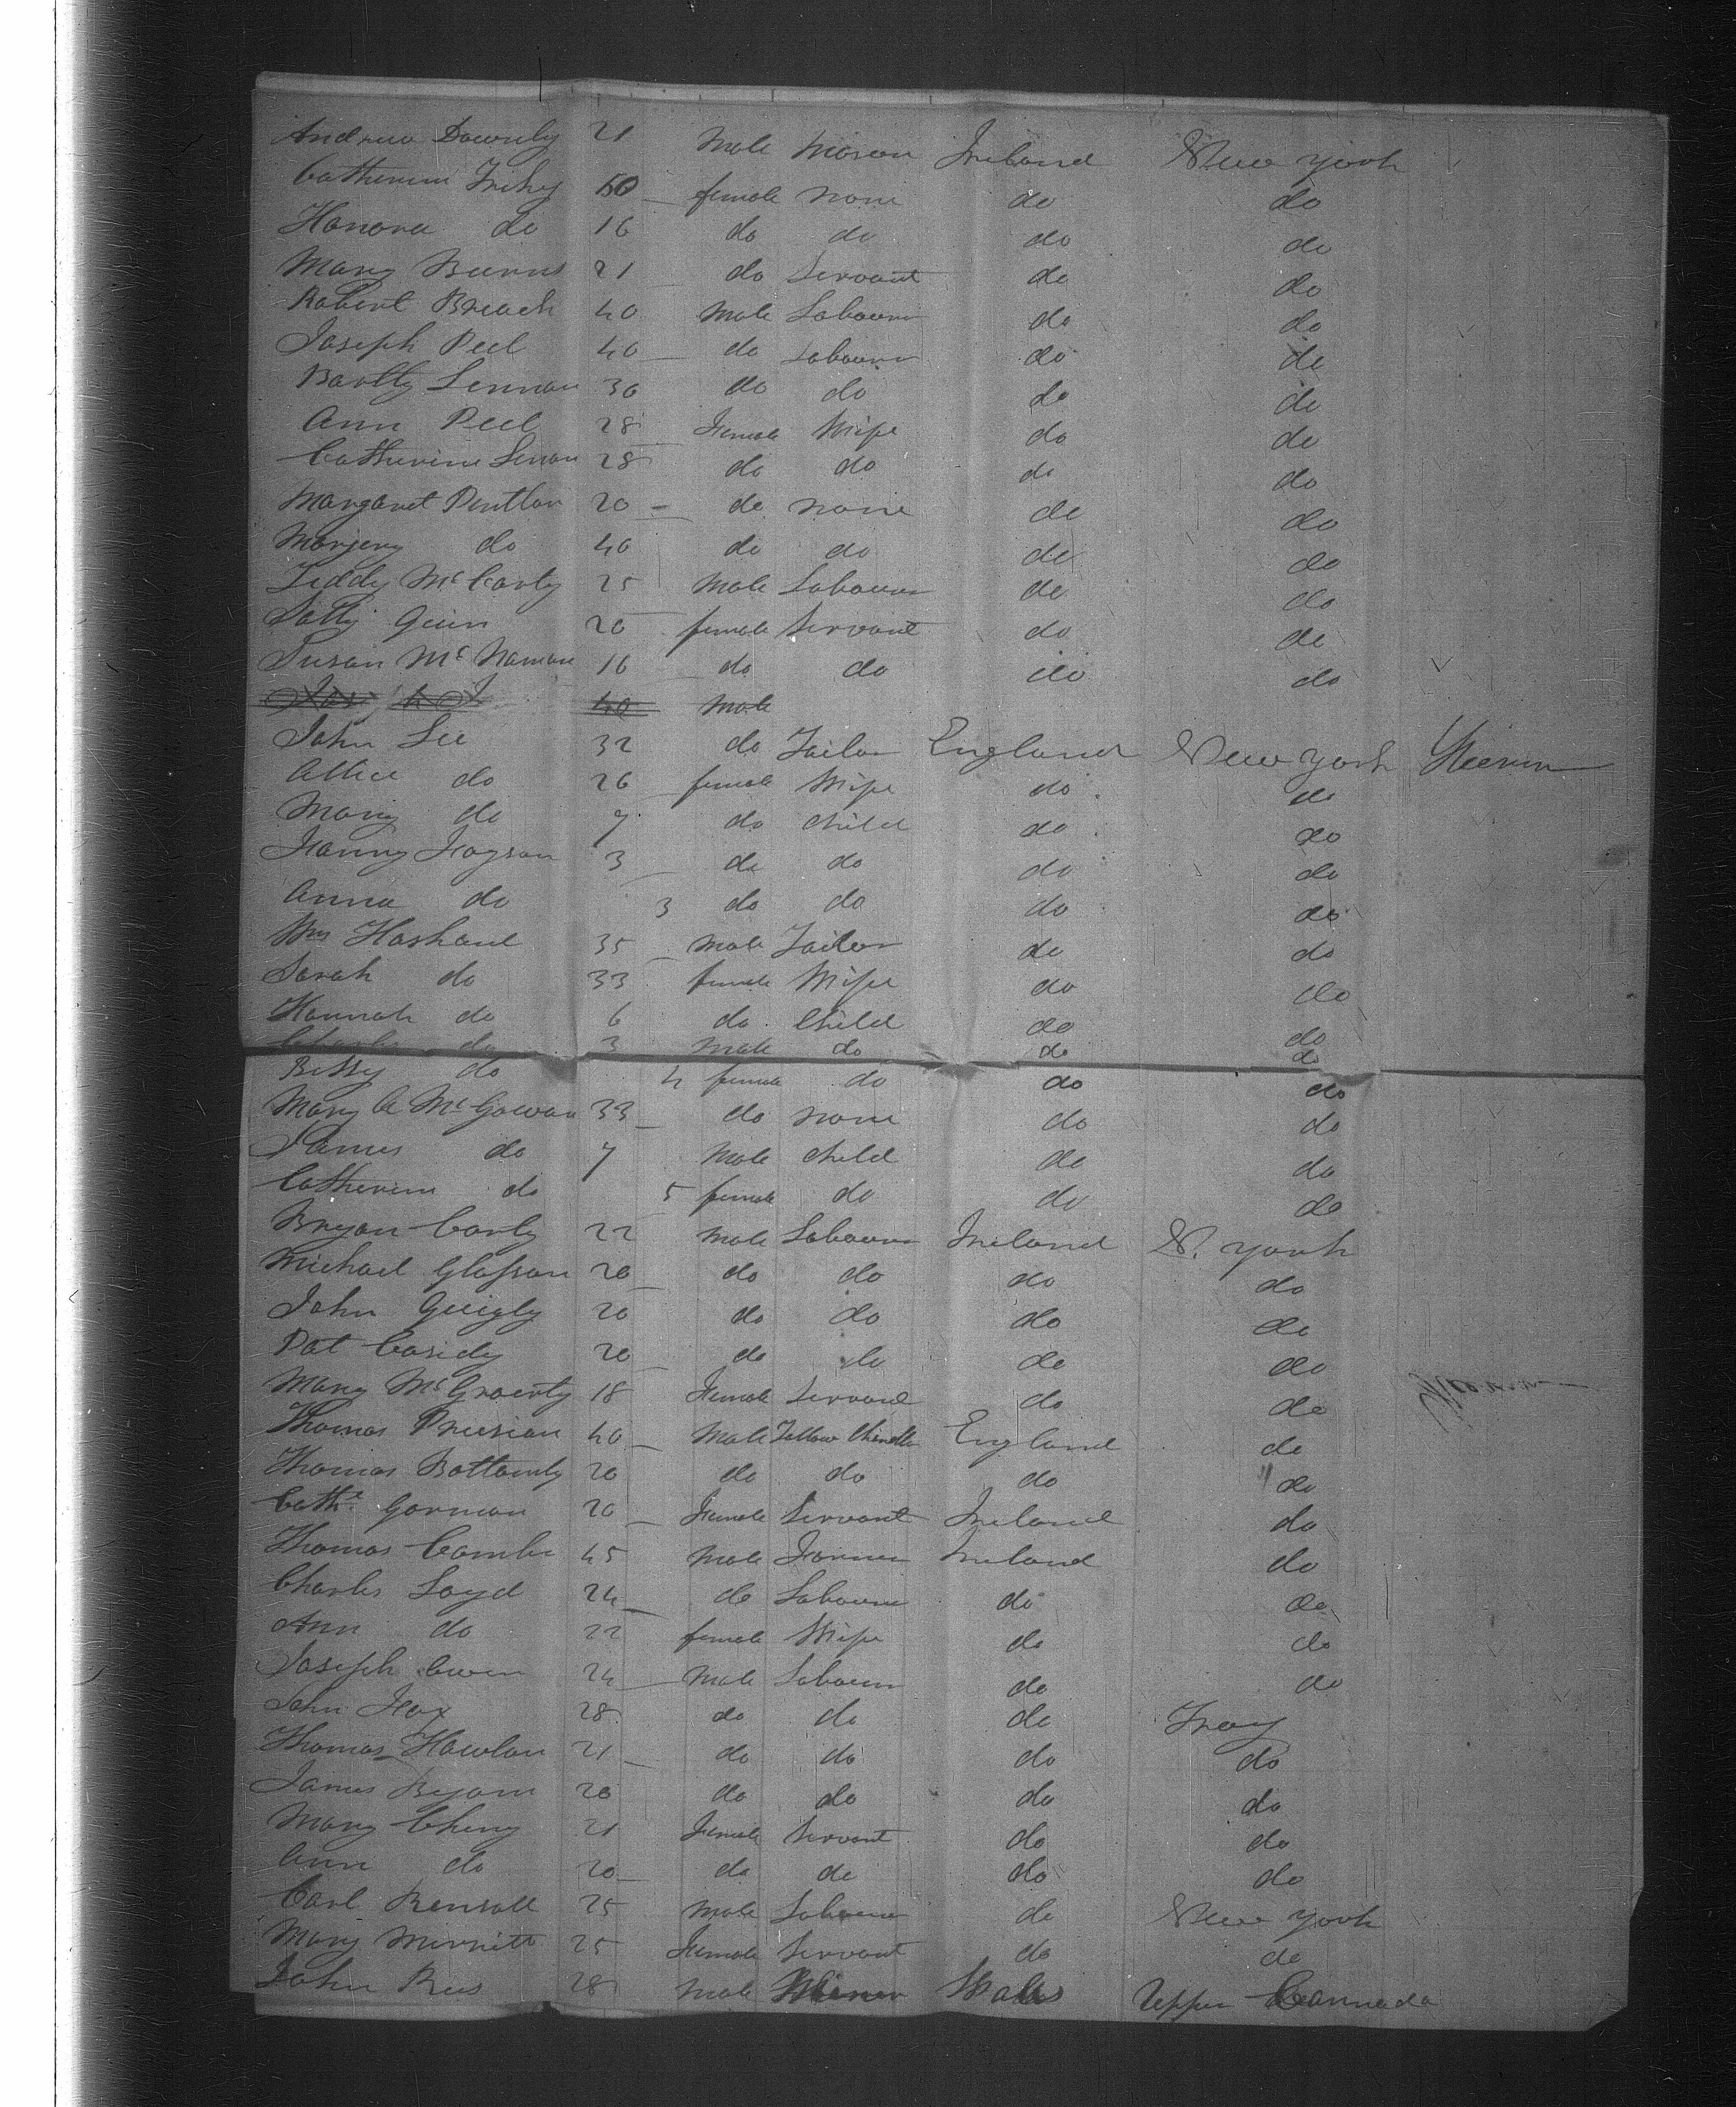 Andrew Downly 21 Male Mason Ireland New York
Catherine Frehy 50 female none do do
Honora do 16 do do do do
Mary Burns 21 do Servant do do
Robert Breach 40 Male Labourer do do
Joseph Peel 40 do Labourer do do
Bartly Lennan 30 do do do do
Ann Peel 28 Female Wife do do
Catherine Lenan 28 do do do do
Margaret Pentlan 20 do none do do
Marjery do 40 do do do do
Teddy McCarty 25 Male Labourer do do
Sally Quin 20 female Servant do do
Susan McNaman 16 do do do do
40 Male
John Lee 32 do Tailor England New York
Allice do 26 female Wife do do
Mary do 7 do child do do
Fanny 3 do do do do
Anna do 3 do do do do
Wm Hoshand 35 Male Tailor do do
Sarah do 33 female Wife do do
Hannah do 6 do Child do do
Charles do 3 Male do do do
Betsy do 4 female do do do
Mary A McGowan 33 do none do do
James do 7 Male child do do
Catherine do 5 female do do do
Bryan Carly 22 Male Labourer Ireland N. York
Michael Glasson 20 do do do do
John Quigly 20 do do do do
Pat Casidy 20 do do do do
Mary McGroerty 18 Female Servant do do
Thomas 40 Male Tallow Chandler England do
Thomas Bottomly 20 do do do do
Cathe Gorman 20 Female Servant Ireland do
Thomas Combe 45 Male Farmer Ireland do
Charles Loyd 24 do Labourer do do
Ann do 22 female Wife do do
Joseph Owen 24 Male Labourer do do
John Fox 28 do do do Troy
Thomas Howlan 21 do do do do
James 20 do do do do
Mary Cheny 21 Female Servant do do
Ann do 20 do do do do
Carl Rensall 25 Male Labourer do New York
Mary Merritt 25 Female Servant do do
John Rees 28 Male Miner Wales Upper Cannada